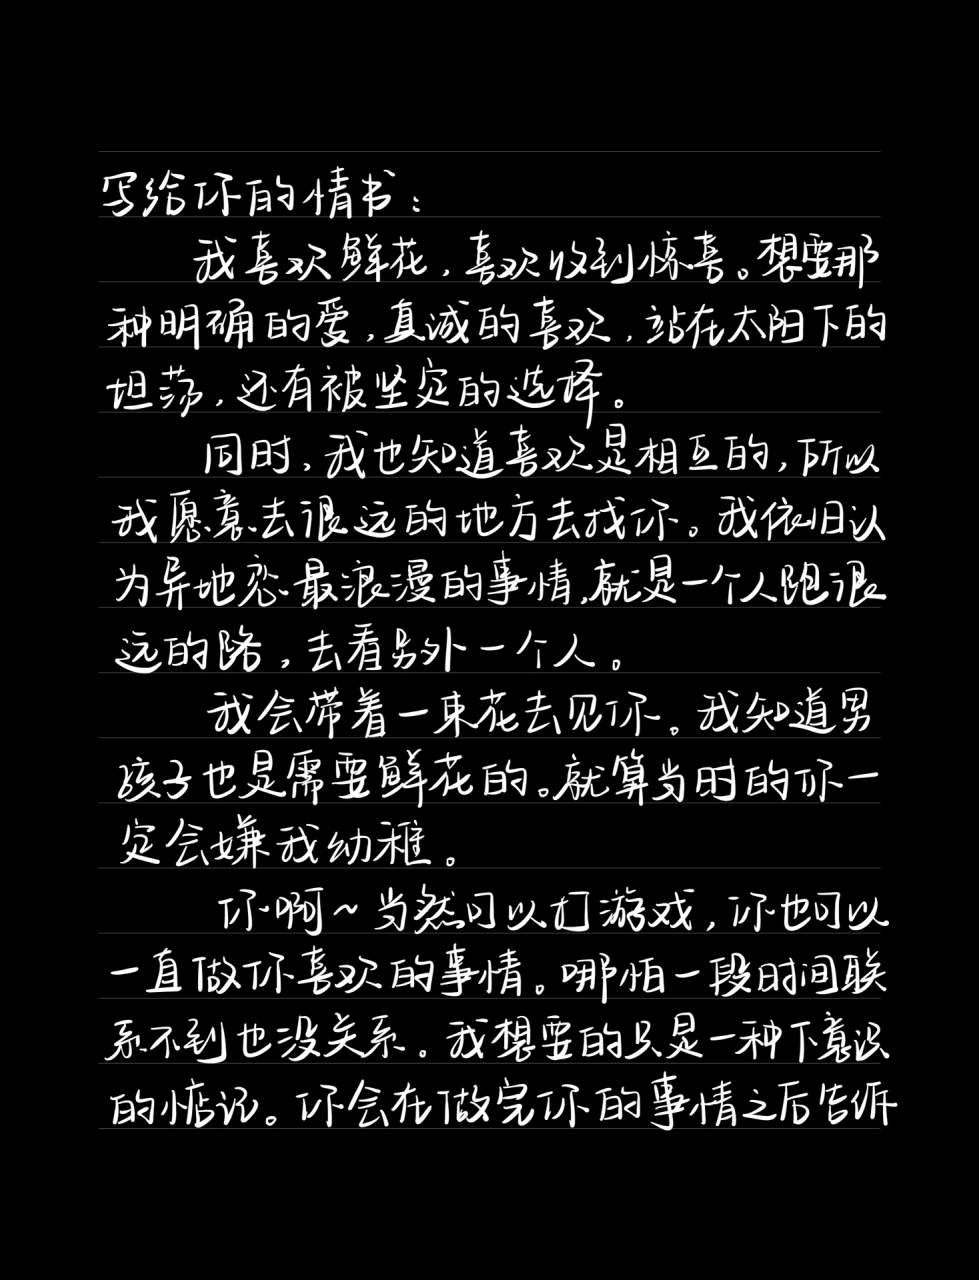 写给你的情书：
我喜欢鲜花，喜欢收到惊喜。想要那
种明确的爱，真诚的喜欢，站在太阳下的
坦荡，还有被坚定的选择。
同时，我也知道喜欢是相互的，所以
我愿意去很远的地方去找你。我依旧认
为异地恋最浪漫的事情，就是一个人跑很
远的路，去看另外一个人。
我会带着一束花去见你。我知道男
孩子也是需要鲜花的。就算当时的你一
定会嫌我幼稚。
你啊～当然可以打游戏，你也可以
一直做你喜欢的事情。哪怕一段时间联
系不到也没关系。我想要的只是一种下意识
的惦记。你会在做完你的事情之后告诉